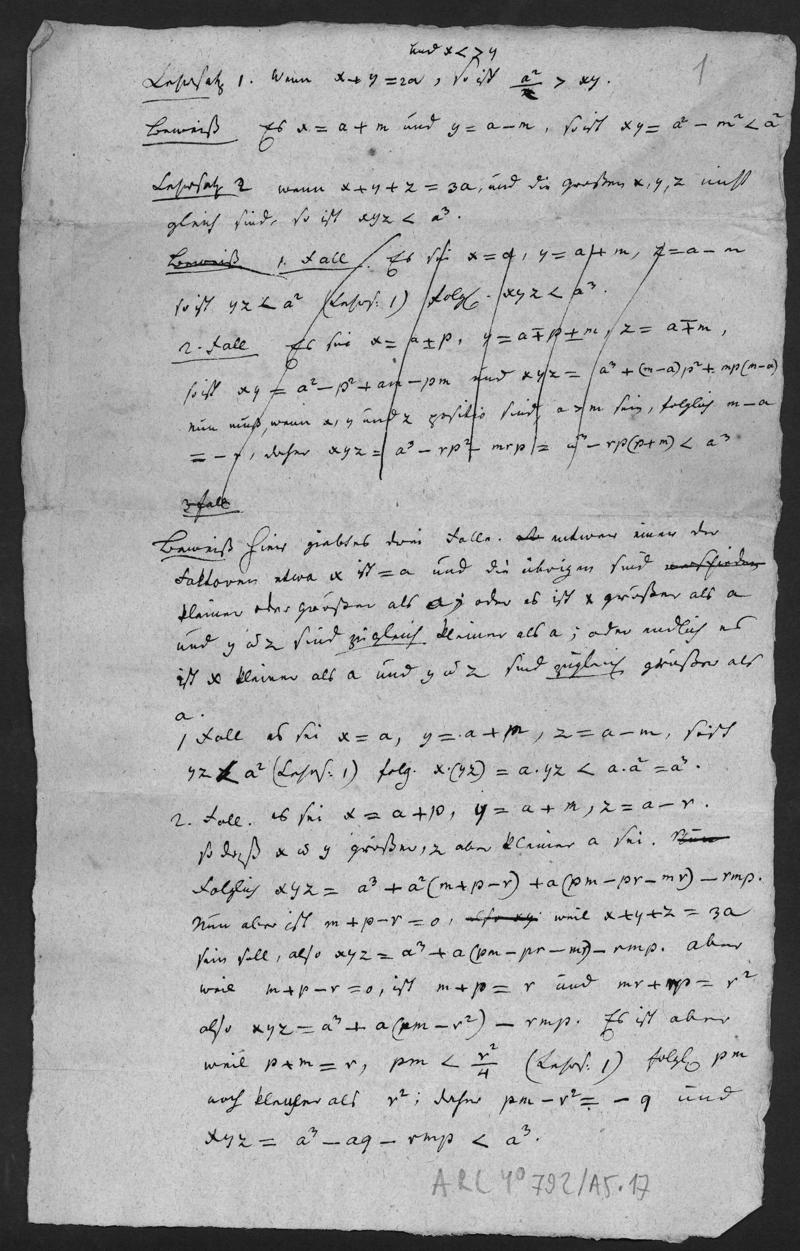 und x < > y
1
Lehrsatz 1. Wenn x + y = 2a, so ist a² > xy.
Beweiß Es x = a + m und y = a − m, so ist xy = a² − m² < a²
Lehrsatz 2 wenn x + y + z = 3a, und die großen x, y, z nicht
gleich sind, so ist xyz < a³.
Beweiß 1. Fall. Es sei x = a, y = a + m, z = a − m
so ist yz < a² (Lehrs. 1) folgl. xyz < a³.
2. Fall Es sei x = a ± p, y = a ∓ p ± m, z = a ∓ m,
so ist xy = a² − p² + am − pm und xyz = a³ + (m−a)p² + mp(m−a)
nun muß, wenn x, y und z positiv sind, a > m sein, folglich m − a
= − r, daher xyz = a³ − rp² − mrp = a³ − rp(p+m) < a³
3 Fall
Beweiß Hier giebt es drei Falle. entweder einer der
Faktoren etwa x ist = a und die übrigen sind verschieden
kleiner oder größer als a; oder es ist x größer als a
und y u z sind zugleich kleiner als a; oder endlich es
ist x kleiner als a und y u z sind zugleich größer als
a.
1 Fall es sei x = a, y = a + m, z = a − m, so ist
yz < a² (Lehrs. 1) folg. x.(yz) = a.yz < a.a² = a³.
2. Fall. es sei x = a + p, y = a + m, z = a − r.
so daß x u y größer, z aber kleiner a sei. Nun
folglich xyz = a³ + a²(m+p−r) + a(pm − pr − mr) − rmp.
Nun aber ist m + p − r = 0, also xy weil x + y + z = 3a
sein soll, also xyz = a³ + a(pm − pr − mr) − rmp. aber
weil m + p − r = 0, ist m + p = r und mr + rp = r²
also xyz = a³ + a(pm − r²) − rmp. Es ist aber
weil p + m = r, pm < r²/4 (Lehrs. 1) folgl. pm
noch kleiner als r²; daher pm − r² = − q und
xyz = a³ − aq − rmp < a³.
ARC 4° 792/A5-17